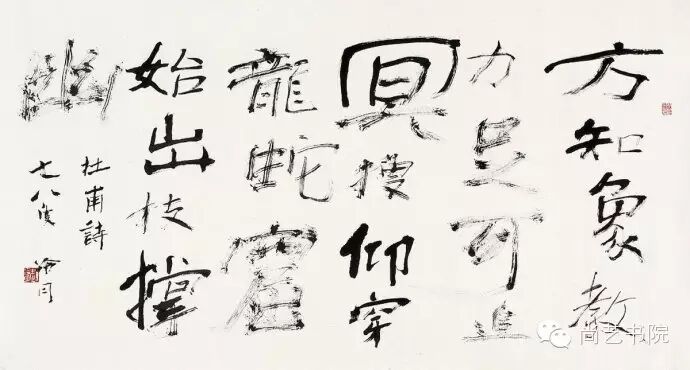 方知象教
力足可追
冥搜仰穿
龍蛇窟
始出枝撐
幽
杜甫詩
七八叟
尚艺书院